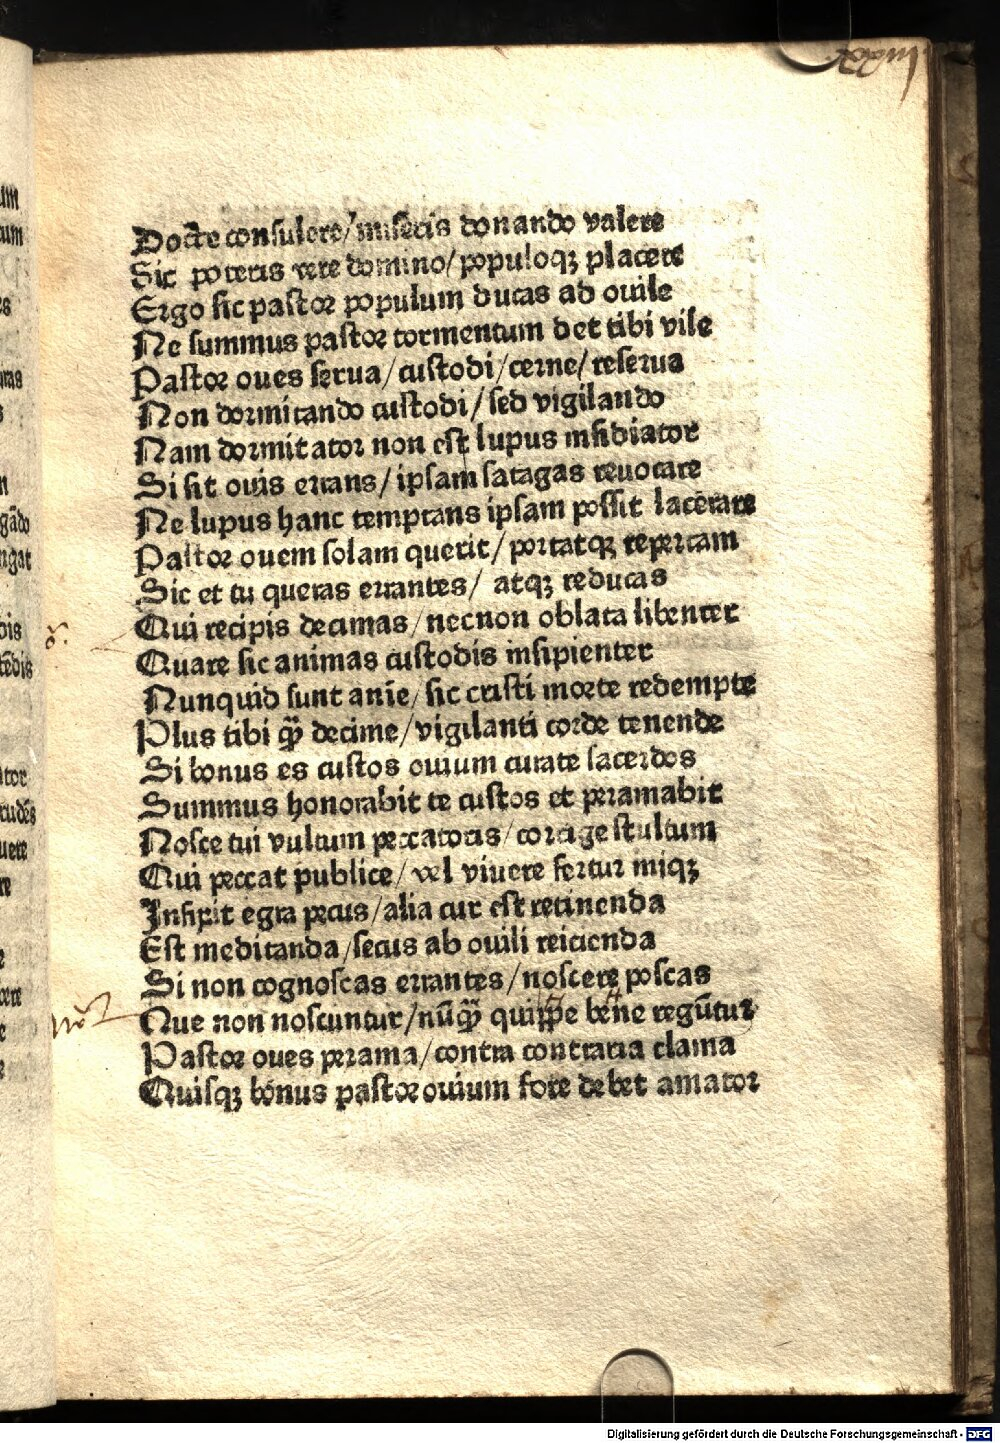 xxxiij
Docte consulere/ miseris donando valere
Sic poteris vere domino/ populoqꝫ placere
Ergo sic pastor populum ducas ad ouile
Ne summus pastor tormentum det tibi vile
Pastor oues serua/ custodi/ cerne/ reserua
Non dormitando custodi/ sed vigilando
Nam dormitator non est lupus insidiator
Si sit ouis errans/ ipsam satagas reuocare
Ne lupus hanc temptans ipsam possit lacerare
Pastor ouem solam querit/ portatqꝫ repertam
Sic et tu queras errantes/ atqꝫ reducas
Qui recipis decimas/ necnon oblata libenter
Quare sic animas custodis insipienter
Nunquid sunt anīe/ sic cristi morte redempte
Plus tibi qꝫ̄ decime/ vigilanti corde tenende
Si bonus es custos ouium curate sacerdos
Summus honorabit te custos et peramabit
Nosce tui vultum peccatoris/ corrige stultum
Qui peccat publice/ vel viuere fertur iniqꝫ
Inficit egra pecus/ alia cur est retinenda
Est meditanda/ secus ab ouili reicienda
Si non cognoscas errantes/ noscere poscas
Que non noscuntur/ nūqꝫ̄ quippe bene regūtur
Pastor oues perama/ contra contraria clama
Quisqꝫ bonus pastor ouium fore debet amator
Digitalisierung gefördert durch die Deutsche Forschungsgemeinschaft - DFG